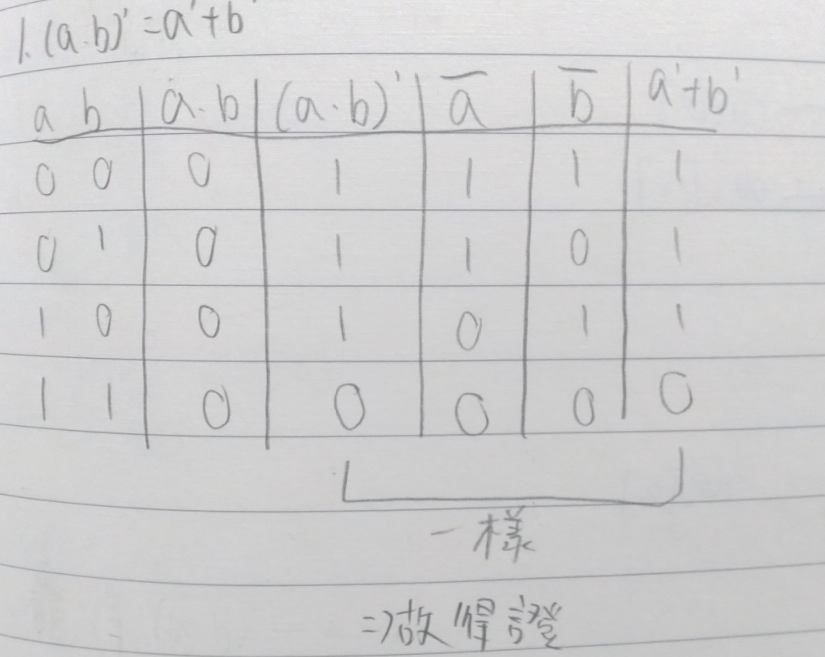 1. (a·b)' = a' + b'
a b | a·b | (a·b)' | a̅ | b̅ | a'+b'
0 0 | 0 | 1 | 1 | 1 | 1
0 1 | 0 | 1 | 1 | 0 | 1
1 0 | 0 | 1 | 0 | 1 | 1
1 1 | 0 | 0 | 0 | 0 | 0
一樣
=>故得證